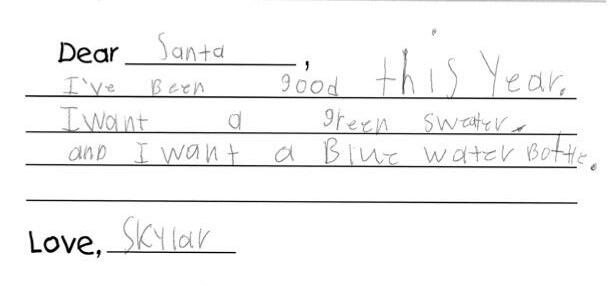 Dear Santa,
I've Been good this Year.
I want a green sweater.
and I want a Blue water Bottle.
Love, Skylar